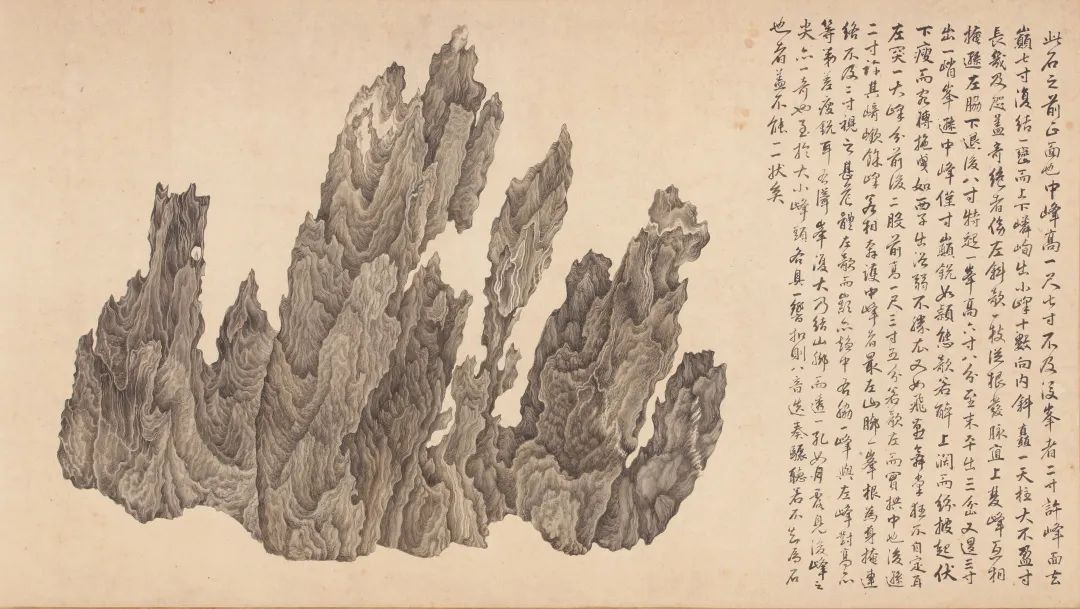 此石之前正面也中峰高一尺七寸不及後峯者二寸許峰面去
巔七寸復結一巒而上下嶙峋出小峰十數向内斜矗一天柱大不盈寸
長幾及咫蓋奇絶者傍左斜欹一枝從根發脉直上雙峰互相
掩遜左脇下退後八寸特起一峯高六寸八分至末平出三岔又退三寸
出一峭峯遜中峰僅寸巔銳如穎態欹若醉上闊而紛披起伏
下瘦而宛轉拖曳如西子出浴弱不勝衣又如飛燕舞掌狂不自定耳
左突一大峰分前後二股前高一尺三寸五分若欹左而實拱中也後遜
二寸許其崎嶔餘峰若相奔護中峰者最左山脚一峯根爲身掩連
絡不及二寸視之甚危體左欹而巔亦趨中右脇一峰與左峰對高亦
等第差瘦銳耳右障峯復大乃結山脚而透一孔如月露見後峰之
尖亦一奇也至於大小峰頭各具一響扣則八音迭奏驟聽若不知爲石
也者蓋不能二狀矣